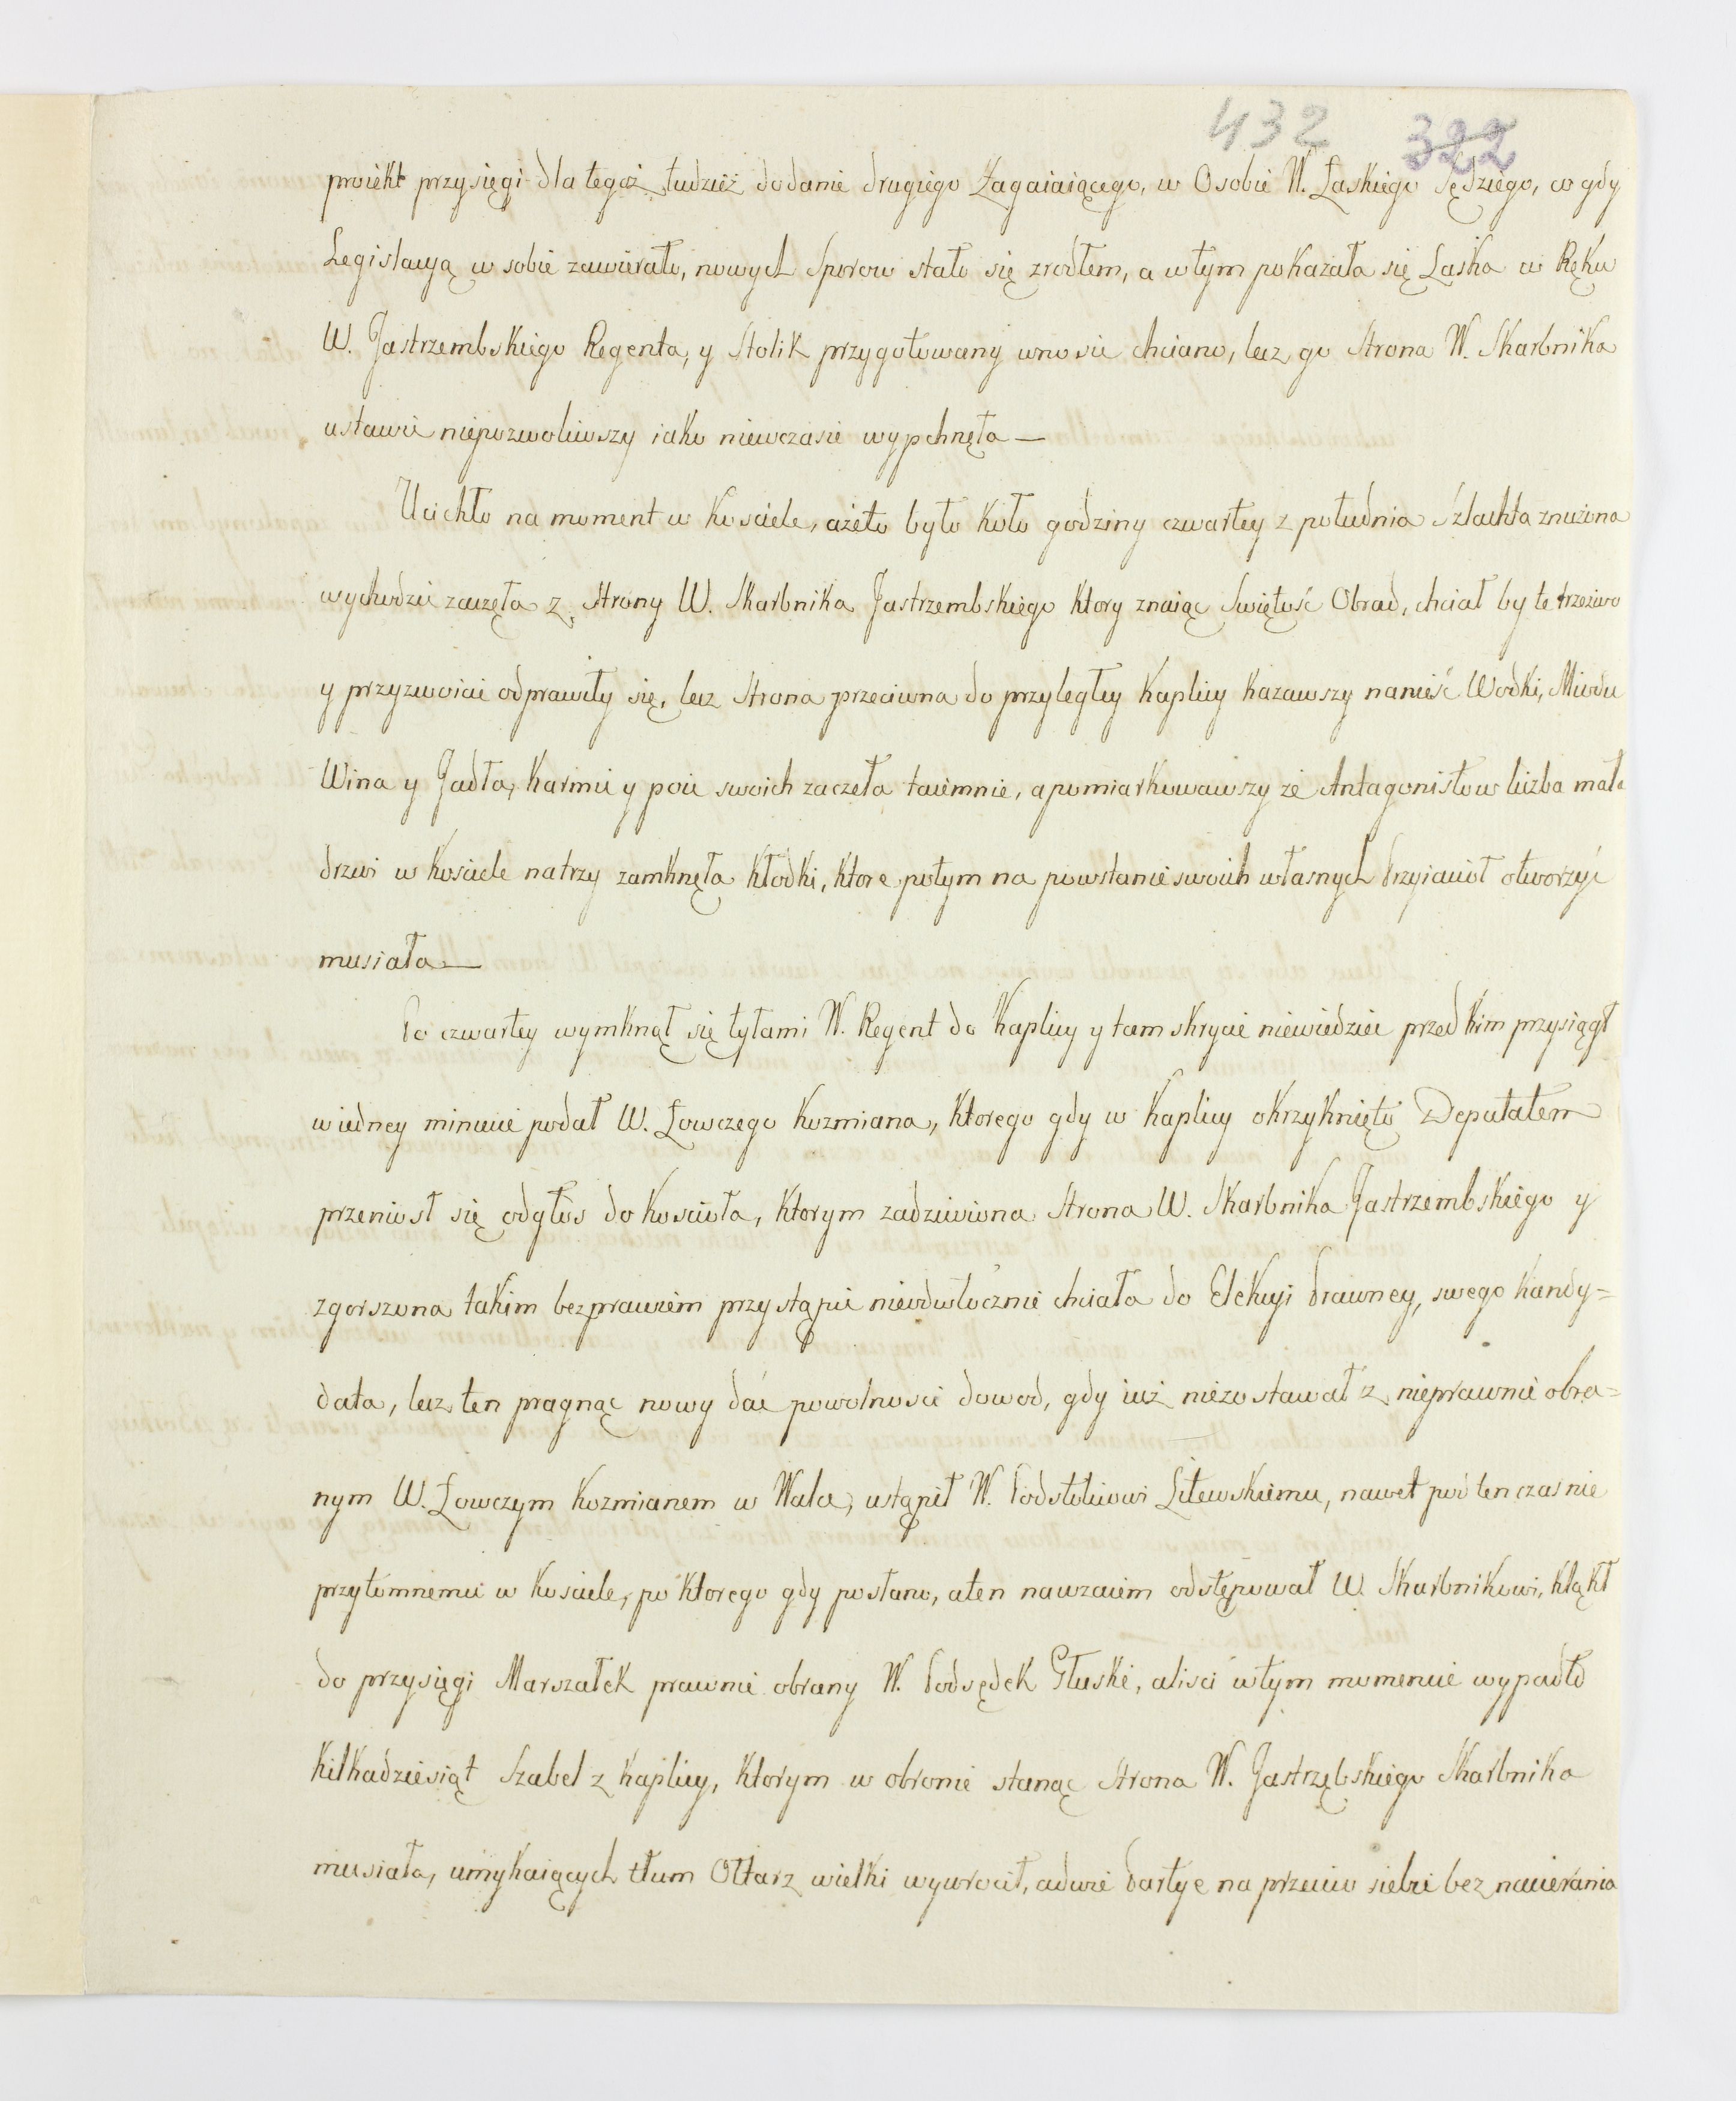 432 322
proiekt przysięgi dla tegoż tudzież dodanie drugiego Zagaiaiącego, w Osobie W. Laskiego Sędziego, co gdy
Legislacyą w sobie zawierało, nowych Sporow stało się zrodłem, a w tym pokazała się Laska w Ręku
W. Jastrzembskiego Regenta, y Stolik przygotowany wnosic chciano, lecz go Strona W. Skarbnika
ustawic niepozwoliwszy iako niewczasie wypchnęła —
Ucichło na moment w Kosciele, ażeto było koło godziny czwartey z południa Szlachta znużona
wychodzic zaczęła z Strony W. Skarbnika Jastrzembskiego ktory znaiąc Swiętość Obrad, chciał by te trzezwo
y przyzwoicie odprawiły się, lecz Strona przeciwna do przyległey Kaplicy kazawszy naniesć Wodki, Miodu
Wina y Jadła, karmic y poic swoich zaczeła taiemnie, a pomiarkowawszy że Antagonistow liczba mała
drzwi w Kosciele na trzy zamknęła Kłodki, ktore potym na powstanie swoich własnych Przyiacioł otworzyć
musiała —
Po czwartey wymknął się tyłami W. Regent do Kaplicy y tam skrycie niewiedziec przed kim przysiągł
w iedney minucie podał W. Łowczego Kozmiana, ktorego gdy w Kaplicy okrzyknięto Deputatem
przeniosł się odgłos do Koscioła, ktorym zadziwiona Strona W. Skarbnika Jastrzembskiego y
zgorszona takim bezprawiem przystąpic nieodwłocznie chciała do Elekcyi Prawney, swego Kandy=
data, lecz ten pragnąc nowy dać powolnosci dowod, gdy iuż niezostawał z nieprawnie obra=
nym W. Łowczym Kozmianem w Walce, ustąpił W. Podstoliowi Litewskiemu, nawet pod ten czas nie
przytomnemu w Kosciele, po ktorego gdy posłano, a ten nawzaiem odstępował W. Skarbnikowi, klękł
do przysięgi Marszałek prawnie obrany W. Podsędek Głuski, alisci w tym momencie wypadło
kilkadziesiąt Szabel z Kaplicy, ktorym w obronie stanąc Strona W. Jastrzębskiego Skarbnika
musiała, umykaiących tłum Ołtarz wielki wywrocił, a dwie Partye na przeciw siebie bez nacierania